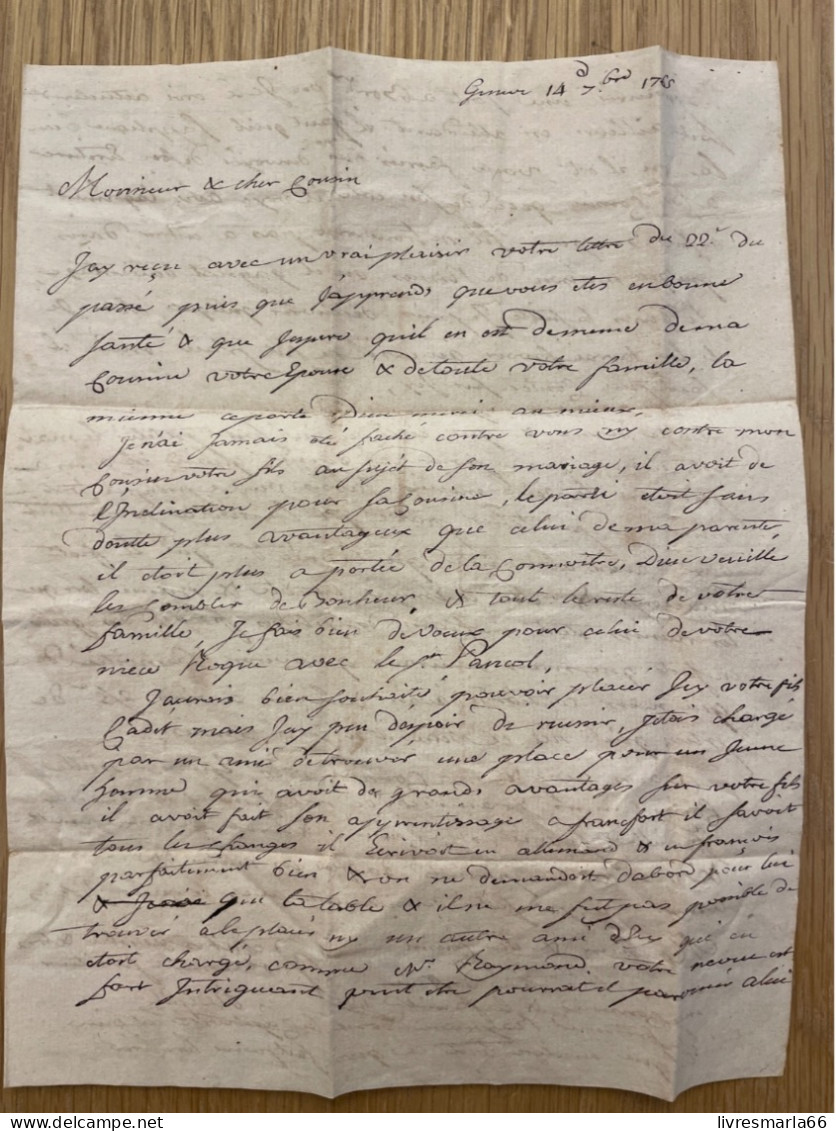 Geneve 14 d 7.bre 1765
Monsieur & cher Cousin
Jay reçu avec un vrai plaisir votre lettre du 22.e du
passé puis que J'apprends que vous etes en bonne
santé & que Jespere quil en est de meme de ma
Cousine votre Epouse & de toute votre famille, la
mienne ce porte Dieu merci au mieux,
Je n'ai Jamais eté faché contre vous ny contre mon
Cousin votre fils au sujét de son mariage, il avoit de
l'Inclination pour sa Cousine, le parti etoit sans
doutte plus avantageux que celui de ma parente,
il etoit plus a portée de la Connoitre, Dieu veuille
les Combler de Bonheur, & tout le reste de votre
famille, Je fais bien de voeux pour celui de votre
niece Roque avec le Sr. Pancol,
Jaurois bien souhaité pouvoir placer Icy votre fils
Cadet mais Jay peu d'espoir de reussir, Jetois chargé
par un ami de trouver une place pour un Jeune
homme qui avoit de grands avantages sur votre fils
il avoit fait son apprentissage a francfort il savoit
tous les changes il Ecrivoit en allemand & en françois
parfaitement bien & on ne demandoit d'abord pour lui
que la table & il ne me fut pas possible de
trouver a le placer ny un autre ami d'Icy qui en
etoit chargé, comme Mr. Raymond votre neveu est
fort Intriguant peut etre pourrat il parvenir a lui
livresmarla66